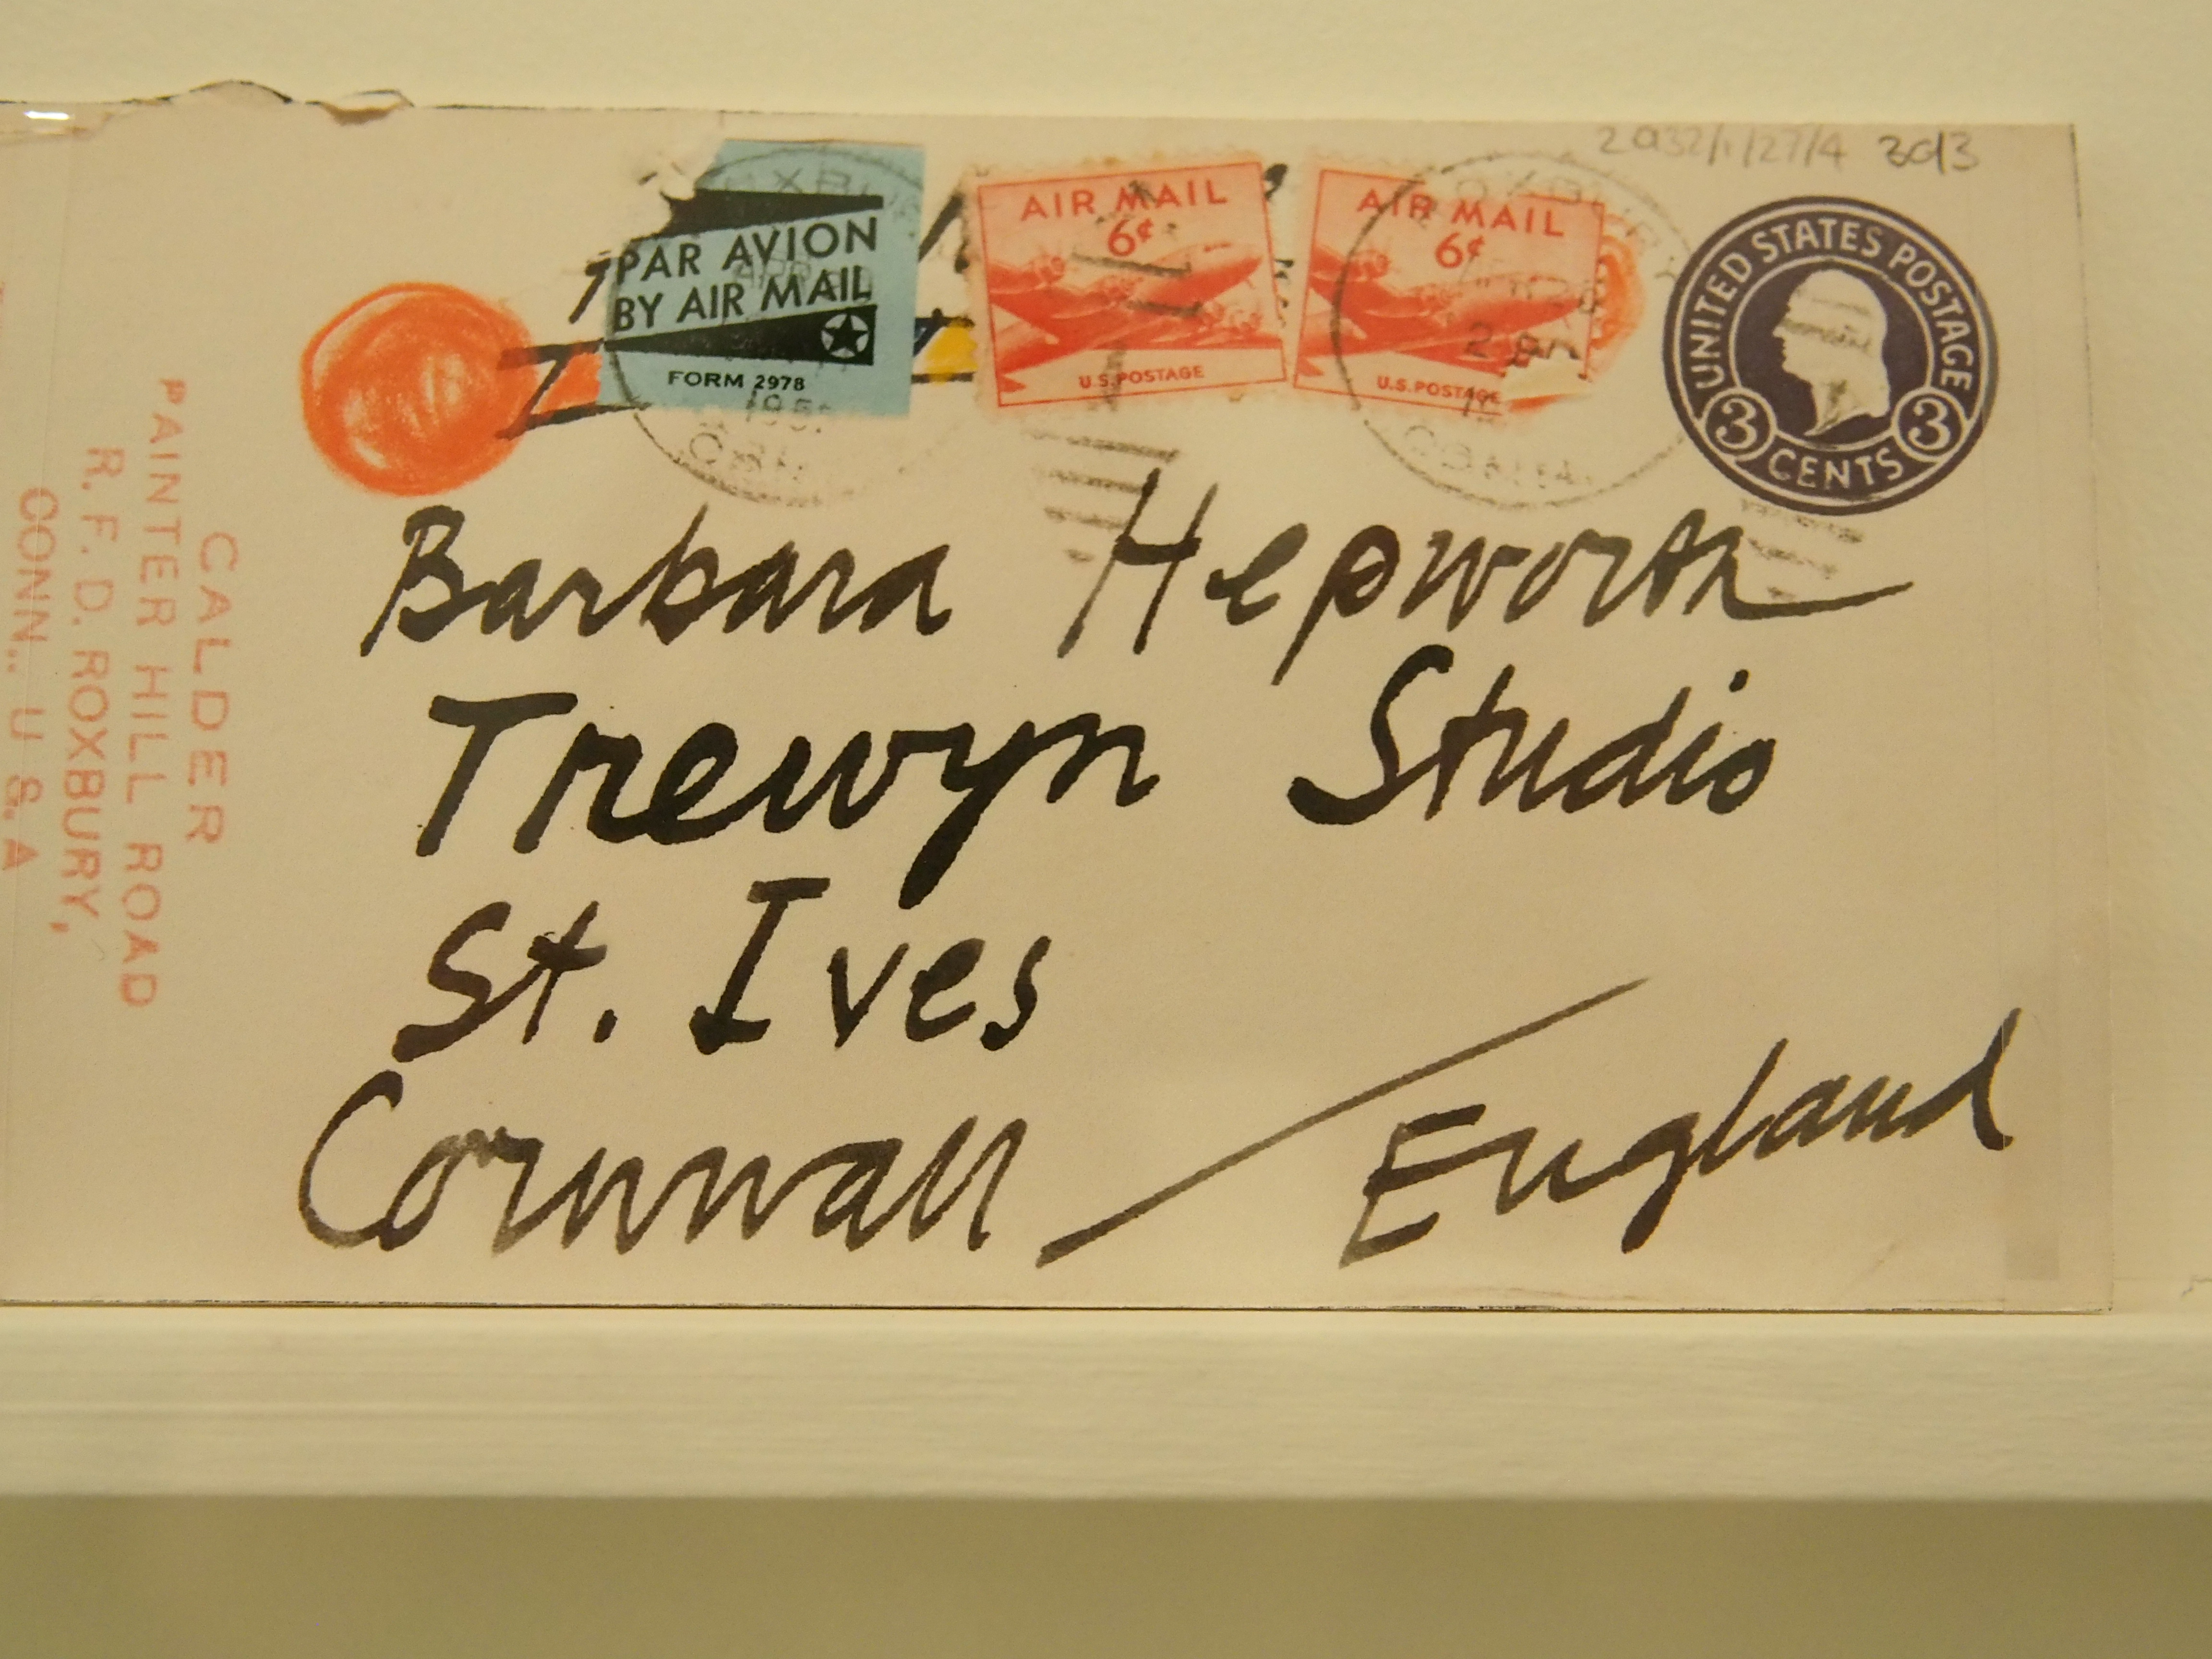 2932/1/27/4 3of3
PAR AVION
BY AIR MAIL
FORM 2978
AIR MAIL
6¢
U.S. POSTAGE
AIR MAIL
6¢
U.S. POSTAGE
ROXBURY
2 PM
CONN.
UNITED STATES POSTAGE
3 CENTS 3
CALDER
PAINTER HILL ROAD
R. F. D. ROXBURY,
CONN., U. S. A
Barbara Hepworth
Trewyn Studio
St. Ives
Cornwall / England